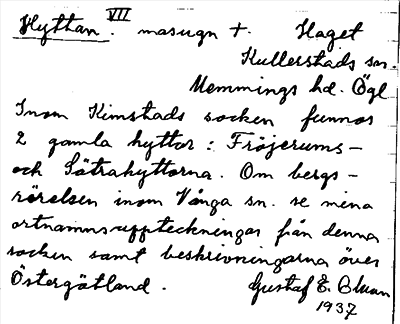 VII
Hyttan. masugn +. Haget
Kullerstads sn.
Memmings hd. Ögl
Inom Kimstads socken funnos
2 gamla hyttor: Fröjerums-
och Sätrahyttorna. Om bergs-
rörelsen inom Vånga sn. se mina
ortnamnsuppteckningar från denna
socken samt beskrivningarna över
Östergötland. Gustaf E. Bluan
1937